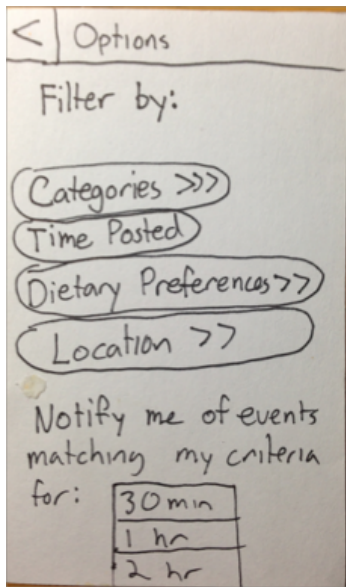 < Options
Filter by:
Categories >>>
Time Posted
Dietary Preferences >>
Location >>
Notify me of events
matching my criteria
for:
30 min
1 hr
2 hr